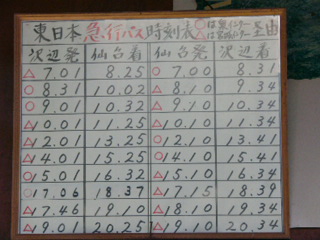 東日本急行バス時刻表 ○は泉インター △は宮城インター 経由
沢辺発 仙台着 沢辺着
△ 7.01 8.25 ○ 7.00 8.31
○ 8.31 10.02 △ 8.10 9.34
○ 9.01 10.32 △ 9.10 10.34
△ 10.01 11.25 △ 10.10 11.34
△ 12.01 13.25 ○ 12.10 13.41
△ 14.01 15.25 ○ 14.10 15.41
○ 15.01 16.32 △ 15.10 16.34
○ 17.06 18.37 △ 17.15 18.39
△ 17.46 19.10 △ 18.10 19.34
△ 19.01 20.25 △ 19.10 20.34